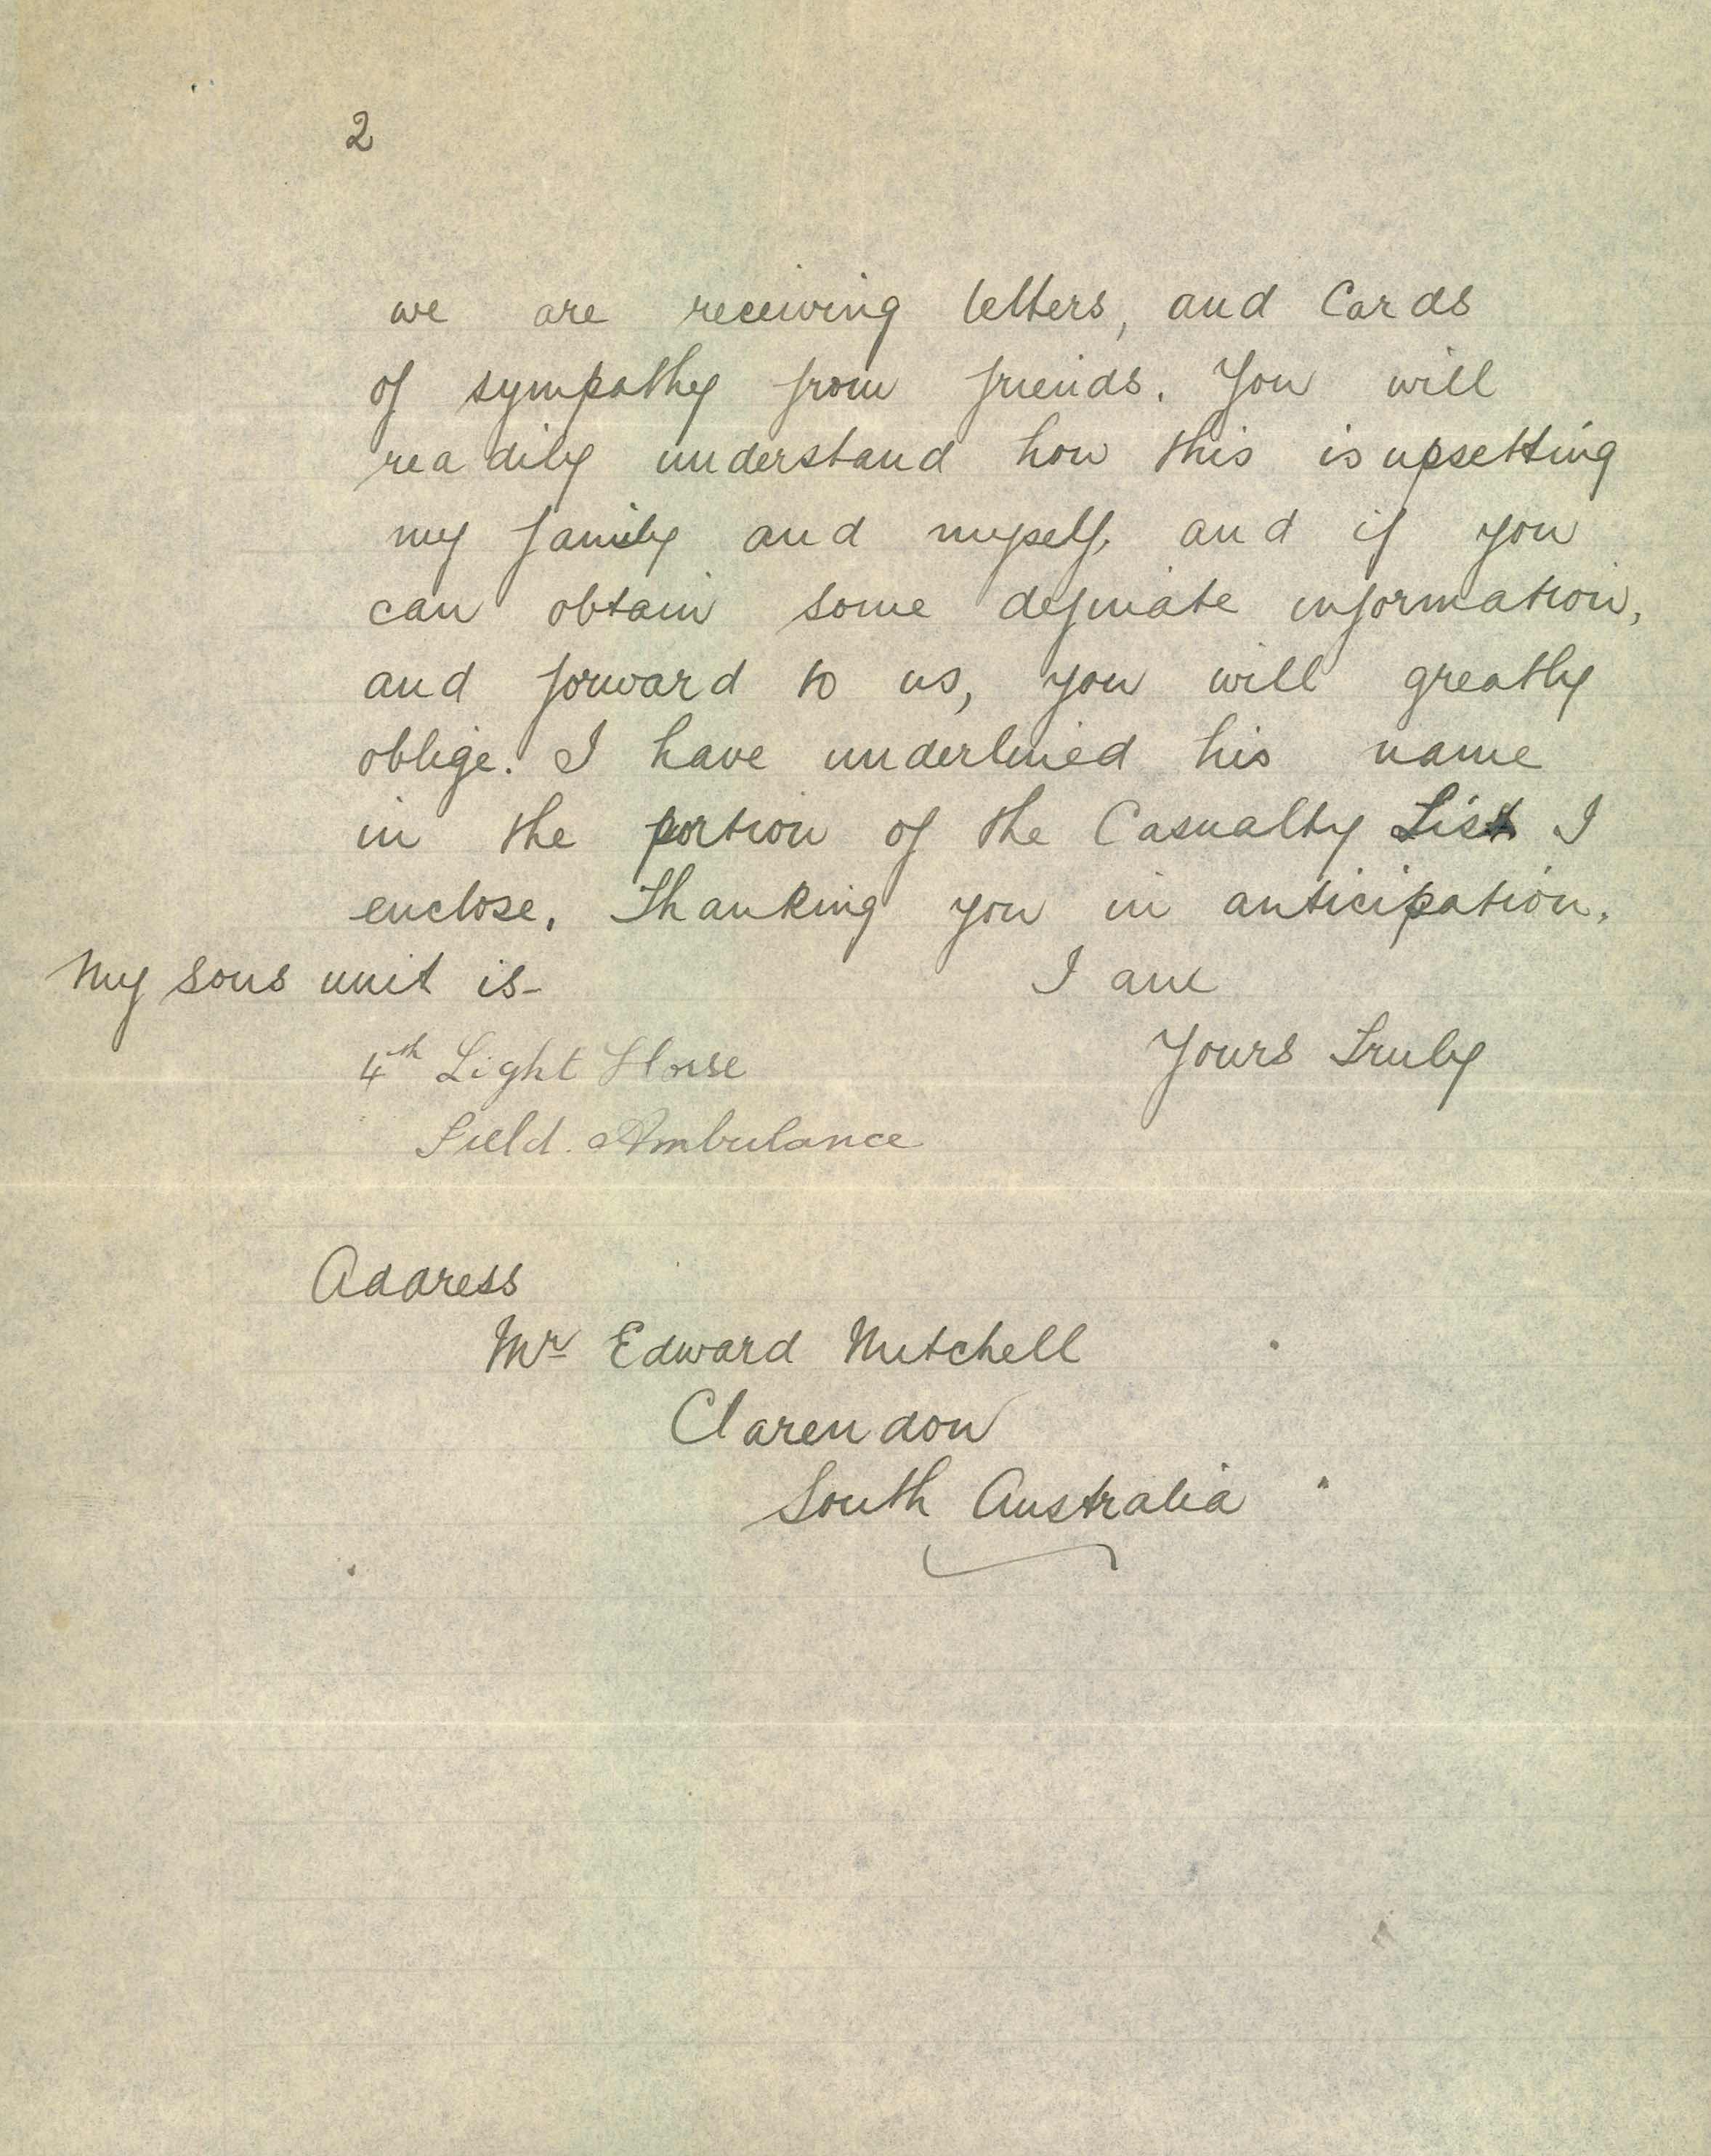 2
we are receiving letters, and Cards
of sympathy from friends. You will
readily understand how this is upsetting
my family and myself, and if you
can obtain some definate information,
and forward to us, you will greatly
oblige. I have underlined his name
in the portion of the Casualty List I
enclose. Thanking you in anticipation.
My sons unit is- I am
Yours Truly
4th Light Horse
Field. Ambulance
Address
Mr Edward Mitchell
Clarendon
South Australia